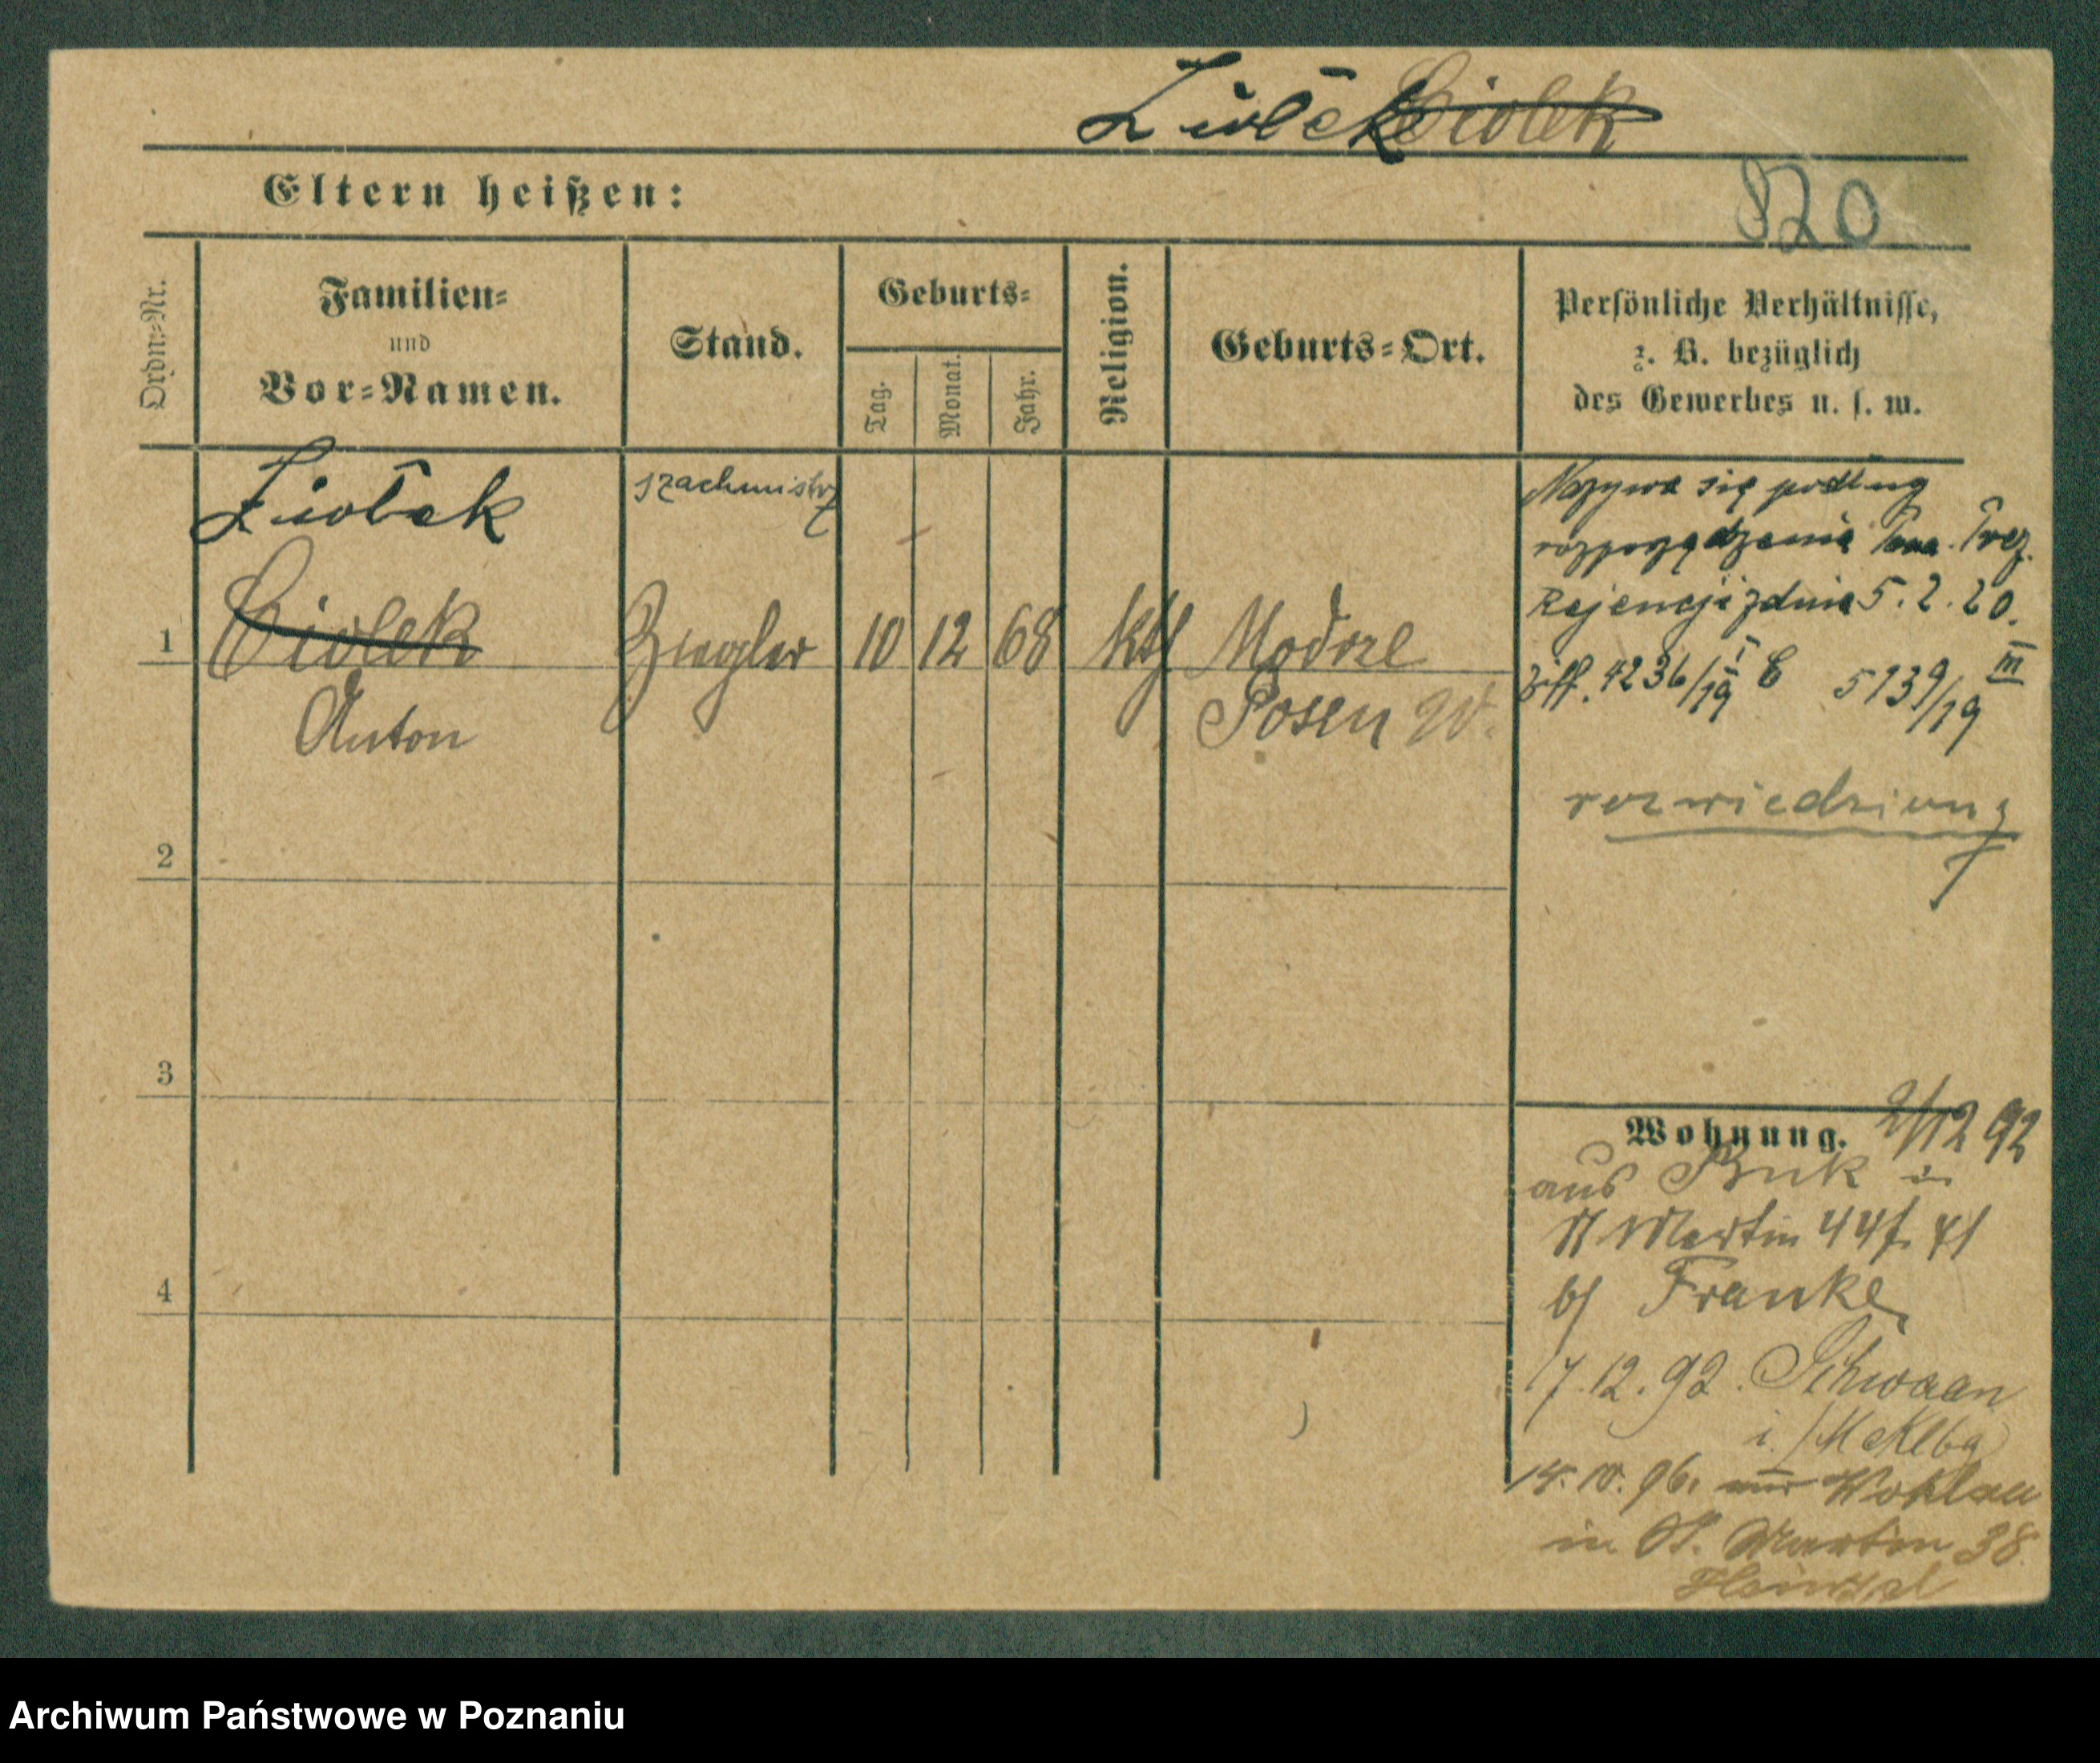 Ziołek Ciolek
Eltern heißen:
820
Ordn.=Nr.
Familien=
und
Vor=Namen.
Stand.
Geburts=
Tag.
Monat.
Jahr.
Religion.
Geburts=Ort.
Persönliche Verhältnisse,
z. B. bezüglich
des Gewerbes u. s. w.
Ziołek
szachmistrz
Nazywa się podług
rozporządzenia Prez.
Rejencji z dnia 5. 2. 20.
Ziff. 4236/19 I C 5139/19 III
1
Ciolek
Ziegler
10
12
68
kth
Modrze
Anton
Posen W.
rozwiedziony
2
3
Wohnung. 2/12 92
aus Buk in
St Martin 44
b/ Franke
17.12.92. Schwaan
i./Meklbg
4
14.10.96. aus Wohlau
in St. Martin 38.